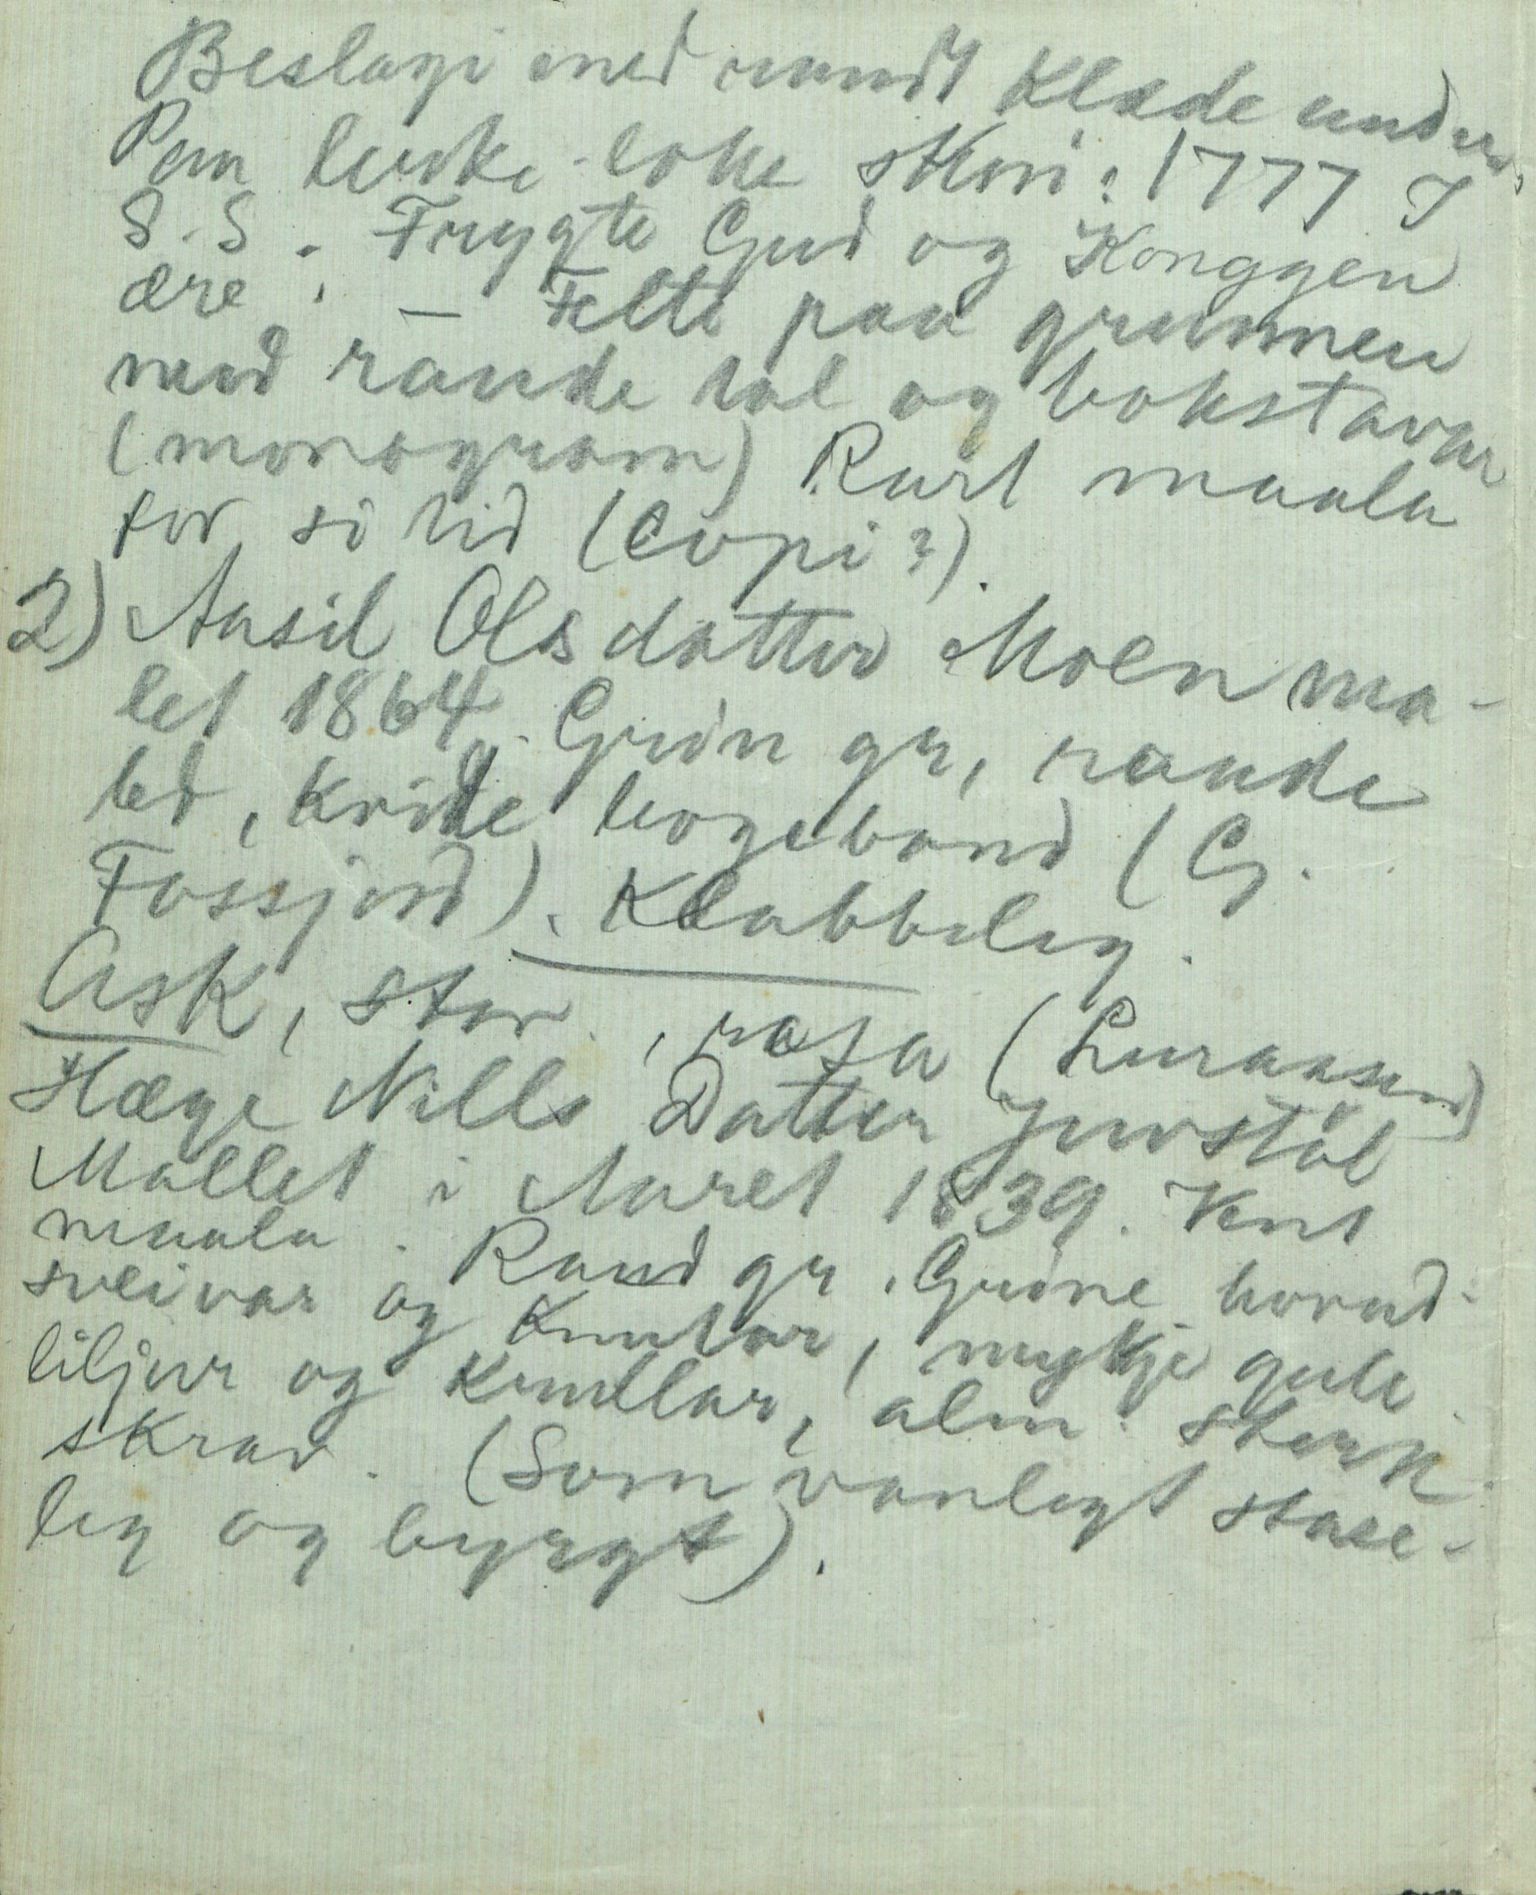 Beslagi med raudt Klæde under.
Paa luke-loke skrii: 1777 I
S.S. Frygte Gud og Konggen
ære. — Felti paa grunnen
med raude tal og bokstavar
(monogram) Rart maala
for si tid (Copi?).
2) Aasil Olsdatter Moen ma-
let 1864. Grön gr, raude
bd, kvide bogeband (G.
Fossjord). Klabbeleg.
Ask, stor, rosa (Luraasen)
Hæge Nills Datter Juvstöl
Mallet i Aaret 1839. Vent
maala. Raud gr. Gröne hovud-
sveivar og Knutar, mykje gule
liljur og krullar, alm. sterk
skrav. (Som vanlegt stase-
leg og byrgt).